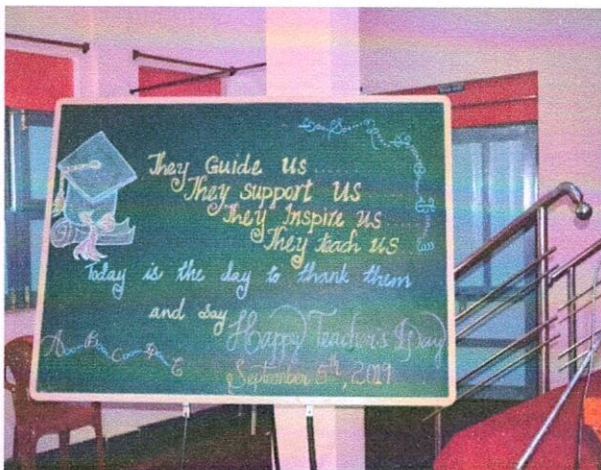 They Guide us
They support us
They Inspire us
They teach us
Today is the day to thank them
and say Happy Teacher's Day
September 5th, 2019
A B C D E